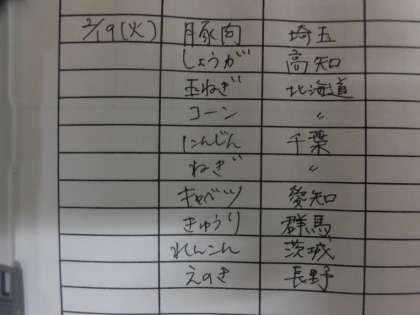 2/19(火) 豚肉 埼玉
しょうが 高知
玉ねぎ 北海道
コーン 〃
にんじん 千葉
ねぎ 〃
キャベツ 愛知
きゅうり 群馬
れんこん 茨城
えのき 長野